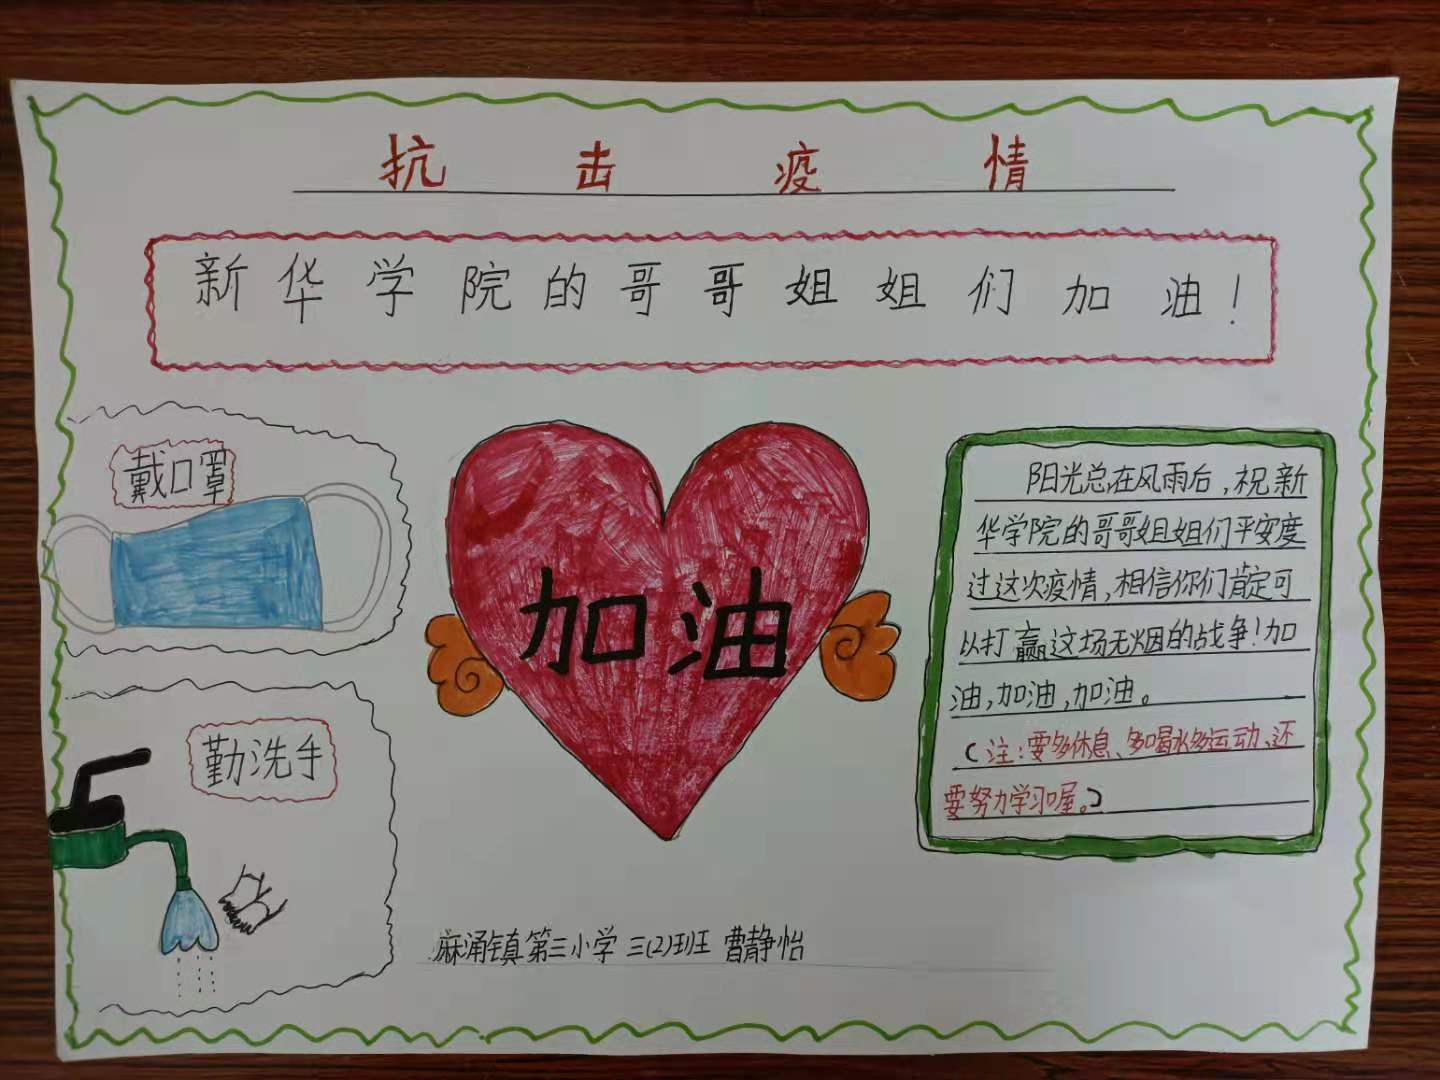 抗击疫情
新华学院的哥哥姐姐们加油！
戴口罩
加油
阳光总在风雨后，祝新
华学院的哥哥姐姐们平安度
过这次疫情，相信你们肯定可
以打赢这场无烟的战争！加
油，加油，加油。
（注：要多休息、多喝水多运动、还
要努力学习喔。）
勤洗手
麻涌镇第三小学 三(2)班 曹静怡